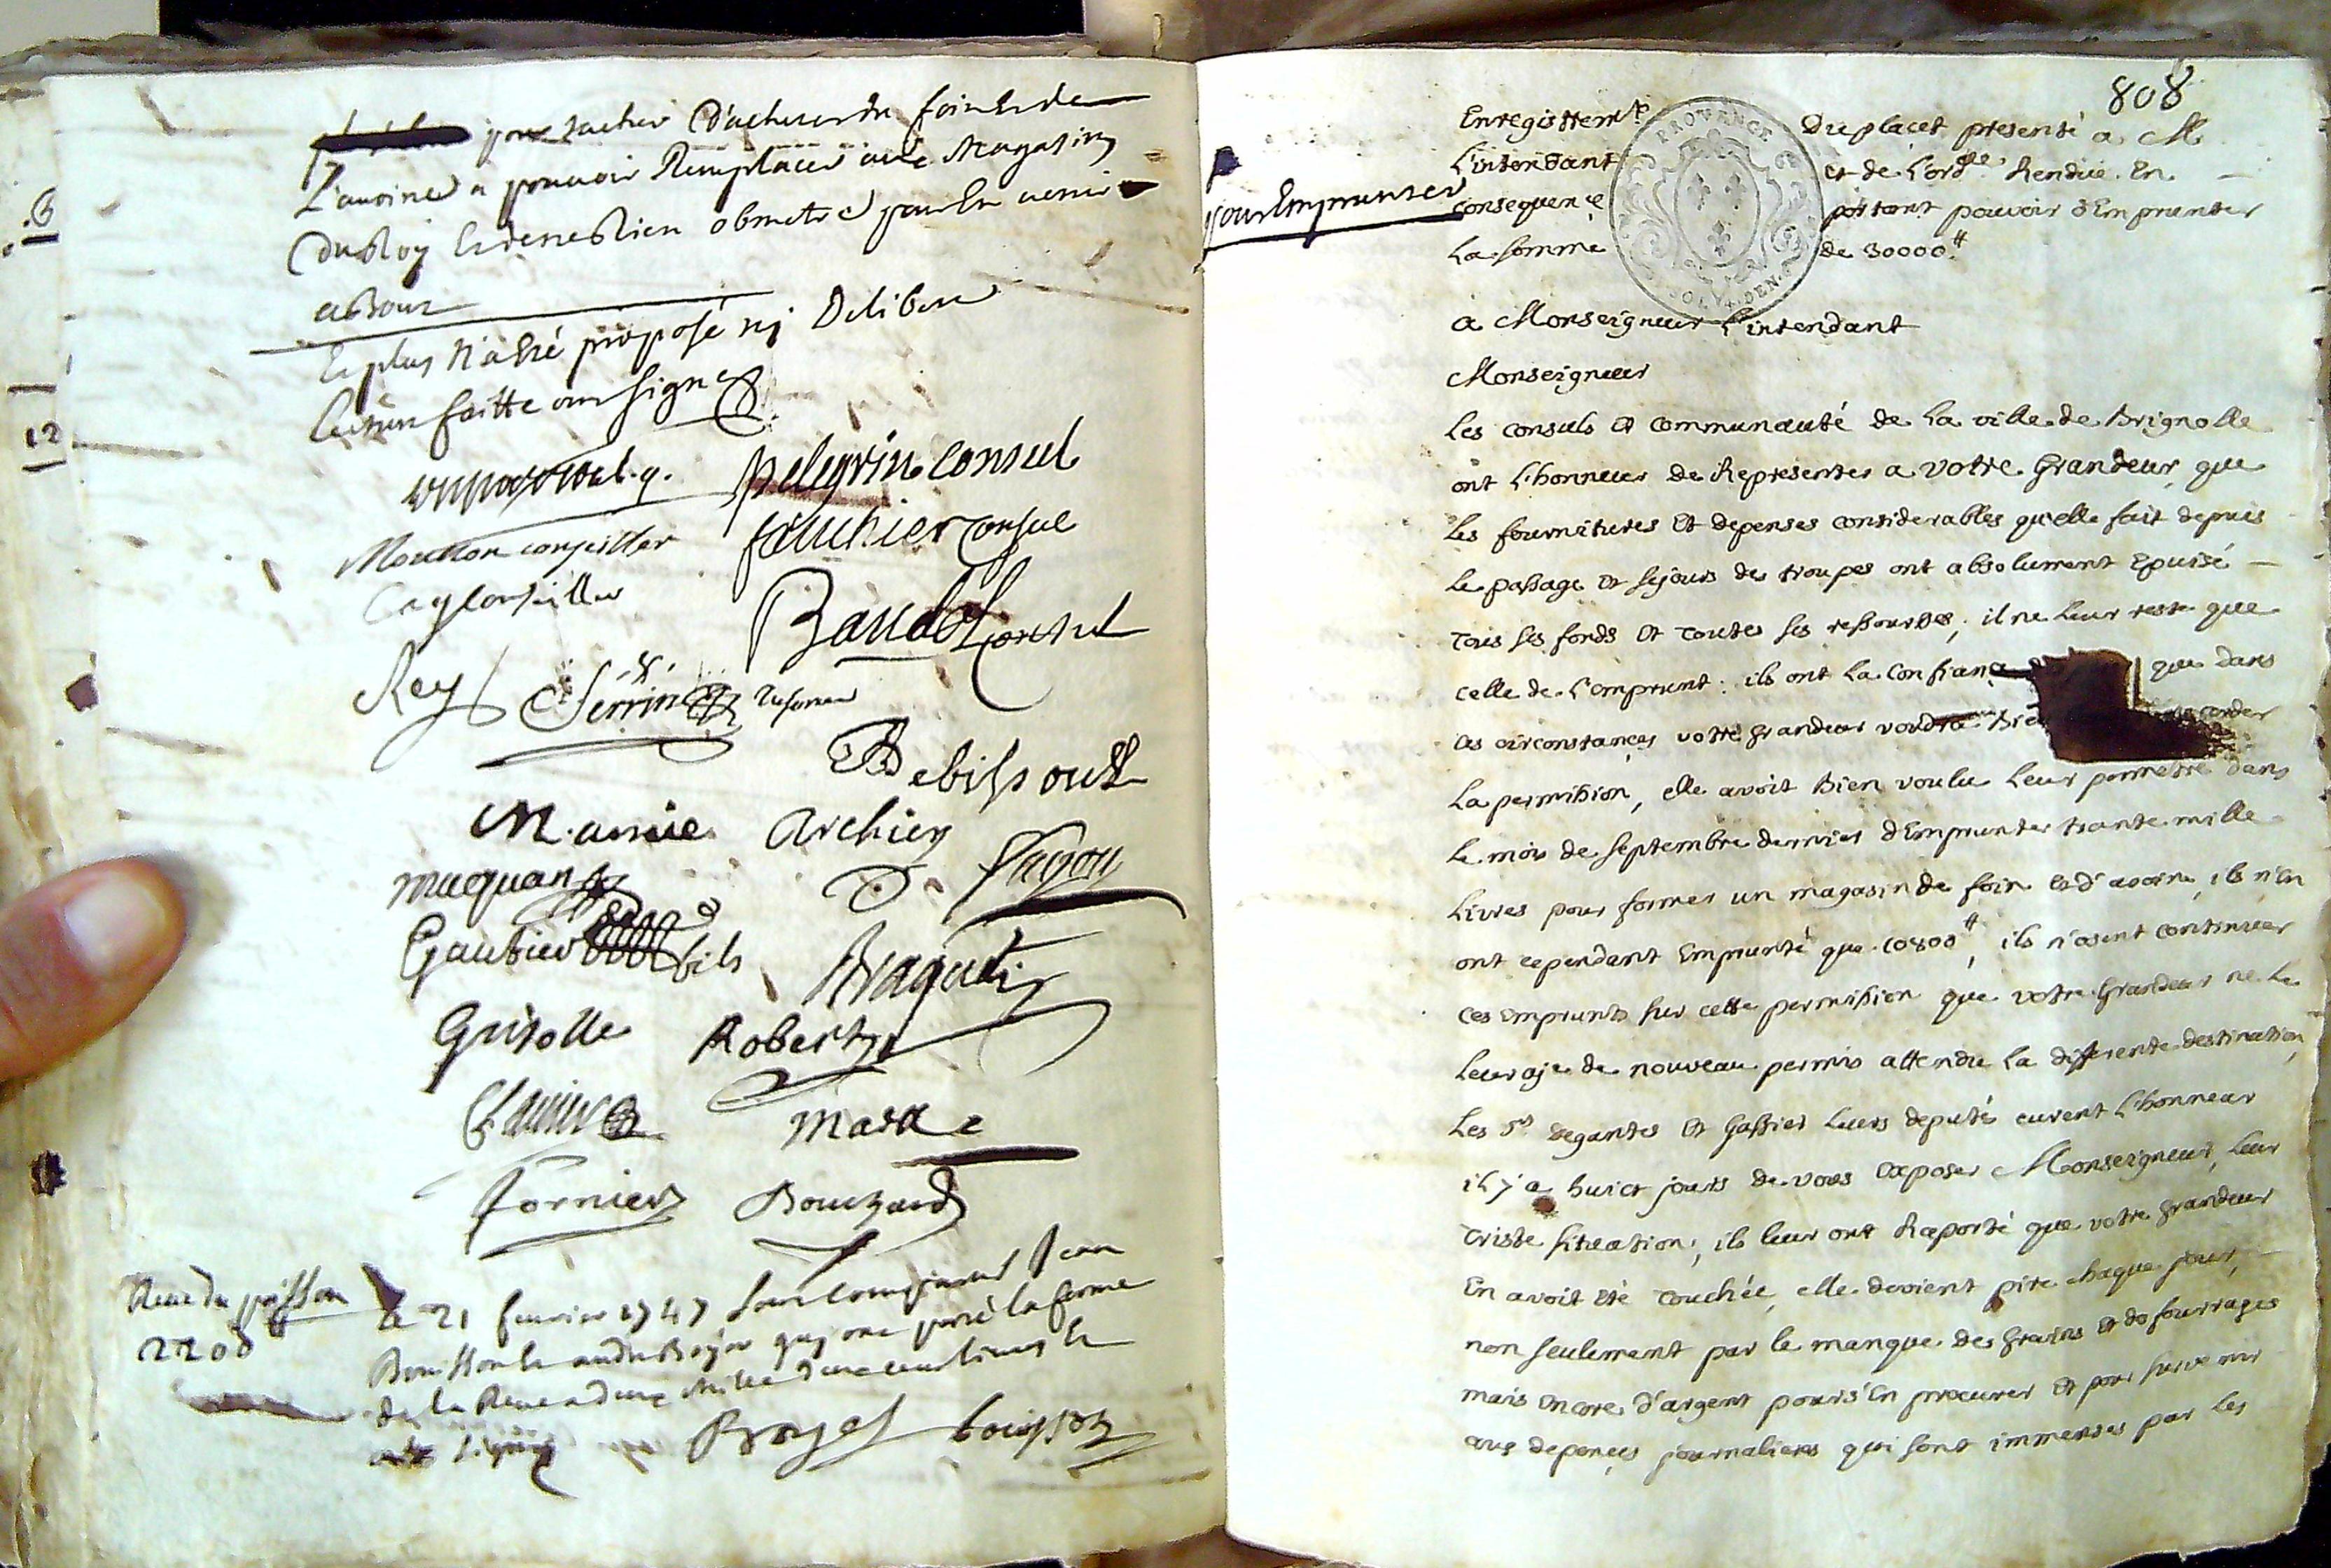 pour tacher d'acheter du foin et de
L'avoine a pouvoir Remplacer aux Magasins
Du Roy et de ne Rien obmetre pour En venir
a Bout
Et plus N'a Eté proposé ni Deliberé
Lecture faitte on signes
pelegrin consul
Moutton conseiller
fauchier consul
Baudol consul
Rey
Serrin
M. amic
Archier
maquan
Fagou
Gautier fils
Braqueti
Grisolle
Robert
Maske
Fornier
Bouzard
Reve du poisson
2200
Le 21 fevrier 1747
de la Reve
Broyel bouisson
808
pour Emprunter
Enregistrem.t du placet presenté a M.
L'intendant et de L'ord.ce Rendue En
consequence portant pouvoir d'Emprunter
La somme de 30000.tt
PROVENCE
SOL
DEN.
a Monseigneur L'intendant
Monseigneur
Les consuls et communauté de La ville de Brignolle
ont L'honneur de Representer a votre Grandeur que
Les fournitures Et depenses considerables qu'elle fait depuis
Le passage et sejours des troupes ont absolument Epuisé
tous ses fonds et toutes ses ressources; il ne Leur reste que
celle de L'emprunt: ils ont La confiance que dans
ces circonstances votre grandeur voudra Bien accorder
La permission, elle avoit Bien voulu Leur permetre dans
Le mois de septembre dernier d'Emprunter trante mille
Livres pour former un magasin de foin et d'avoine, ils n'En
ont cependant Emprunté que 10800.tt, ils n'osent continuer
ces emprunts sur cette permission que votre Grandeur ne Le
Leur aje de nouveau permis attendu La differente destination,
Les s.rs degantes Et Gassier Leurs deputés eurent L'honneur
il y a huict jours de vous Exposer Monseigneur, Leur
triste situation; ils leur ont Raporté que votre grandeur
En avoit Eté touchée, elle devient pire chaque jour,
non seulement par le manque des grains et de fourrages
mais encore d'argent pour s'En procurer et pour survenir
aux depences journalieres qui sont immenses par les